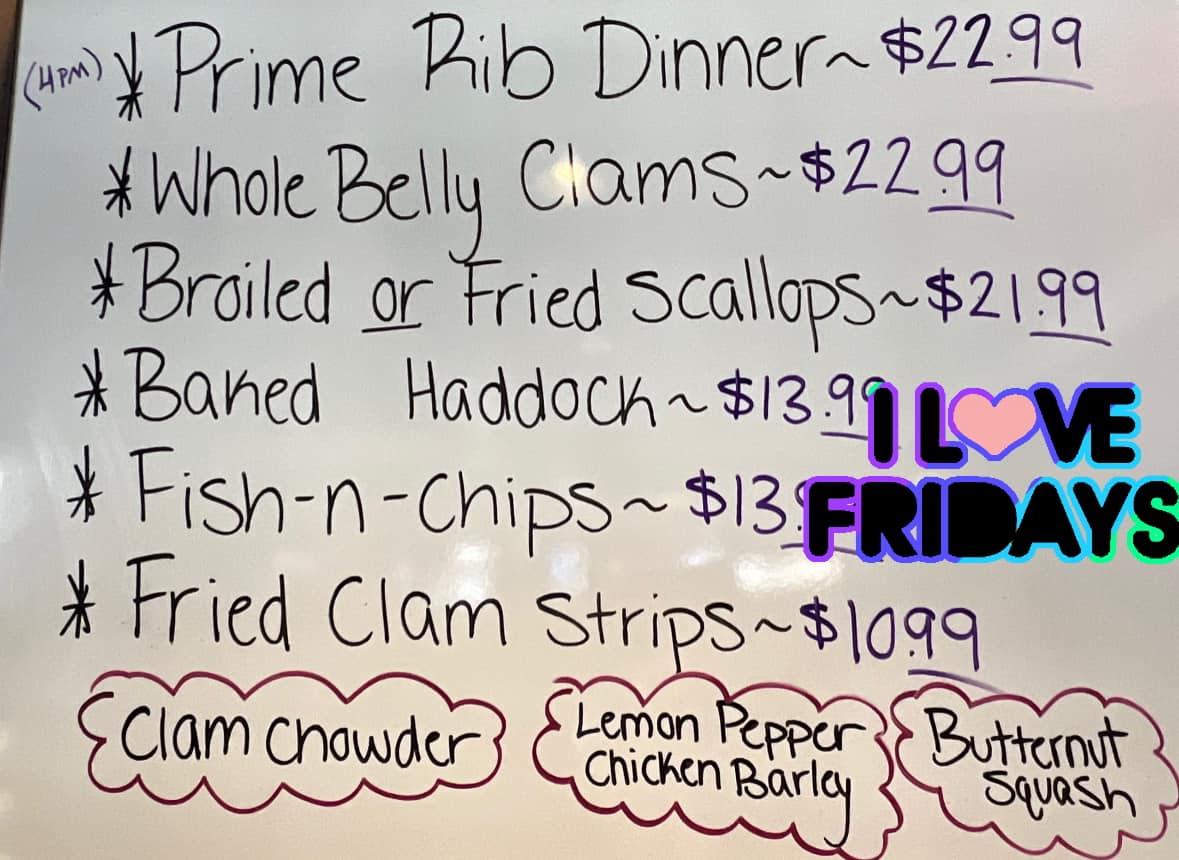 (4PM) * Prime Rib Dinner ~ $22.99
* Whole Belly Clams ~ $22.99
* Broiled or Fried Scallops ~ $21.99
* Baked Haddock ~ $13.99
I L♥VE
* Fish-n-Chips ~ $13.
FRIDAYS
* Fried Clam Strips ~ $10.99
Clam Chowder
Lemon Pepper
Chicken Barley
Butternut
Squash